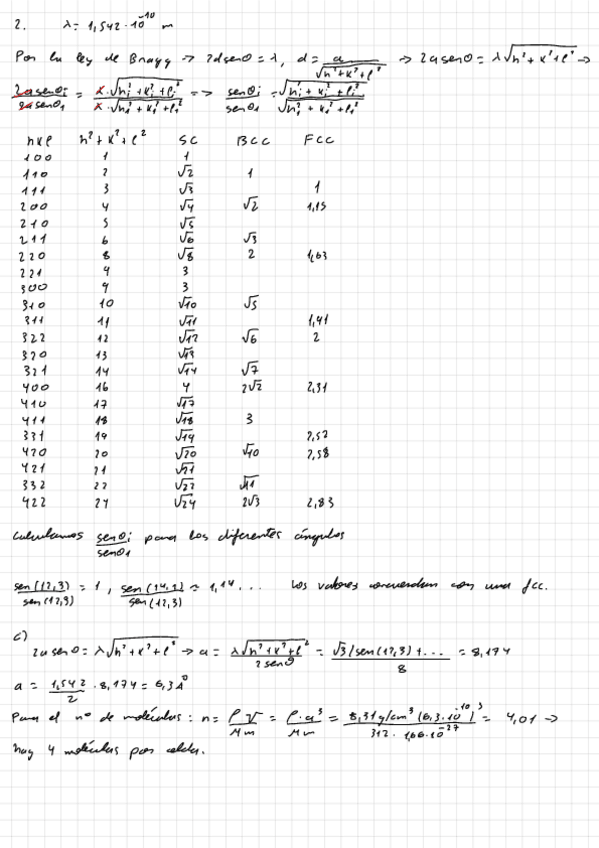 2. λ = 1,542·10⁻¹⁰ m
Por la ley de Bragg → 2d senθ = λ, d = a/√(h²+k²+l²) → 2a senθ = λ√(h²+k²+l²) →
2a senθi/2a senθ1 = λ·√(hi²+ki²+li²)/λ·√(h1²+k1²+l1²) => senθi/senθ1 = √(hi²+ki²+li²)/√(h1²+k1²+l1²)
hkl h²+k²+l² SC BCC FCC
100 1 1
110 2 √2 1
111 3 √3 1
200 4 √4 √2 1,15
210 5 √5
211 6 √6 √3
220 8 √8 2 1,63
221 9 3
300 9 3
310 10 √10 √5
311 11 √11 1,91
322 12 √12 √6 2
320 13 √13
321 14 √14 √7
400 16 4 2√2 2,31
410 17 √17
411 18 √18 3
331 19 √19 2,52
420 20 √20 √10 2,58
421 21 √21
332 22 √22 √11
422 24 √24 2√3 2,83
Calculamos senθi/senθ1 para los diferentes ángulos
sen(12,3)/sen(12,3) = 1, sen(14,1)/sen(12,3) = 1,14... Los valores concuerdan con una fcc.
c)
2a senθ = λ√(h²+k²+l²) → a = λ√(h²+k²+l²)/2senθ = √3/sen(12,3)+.../8 = 8,174
a = 1,542/2 · 8,174 = 6,3 Å
Para el nº de moléculas: n = ρV/Mm = ρ·a³/Mm = 8,31g/cm³(6,3·10⁻¹⁰)³/312·1,66·10⁻²⁷ = 4,01 →
hay 4 moléculas por celda.